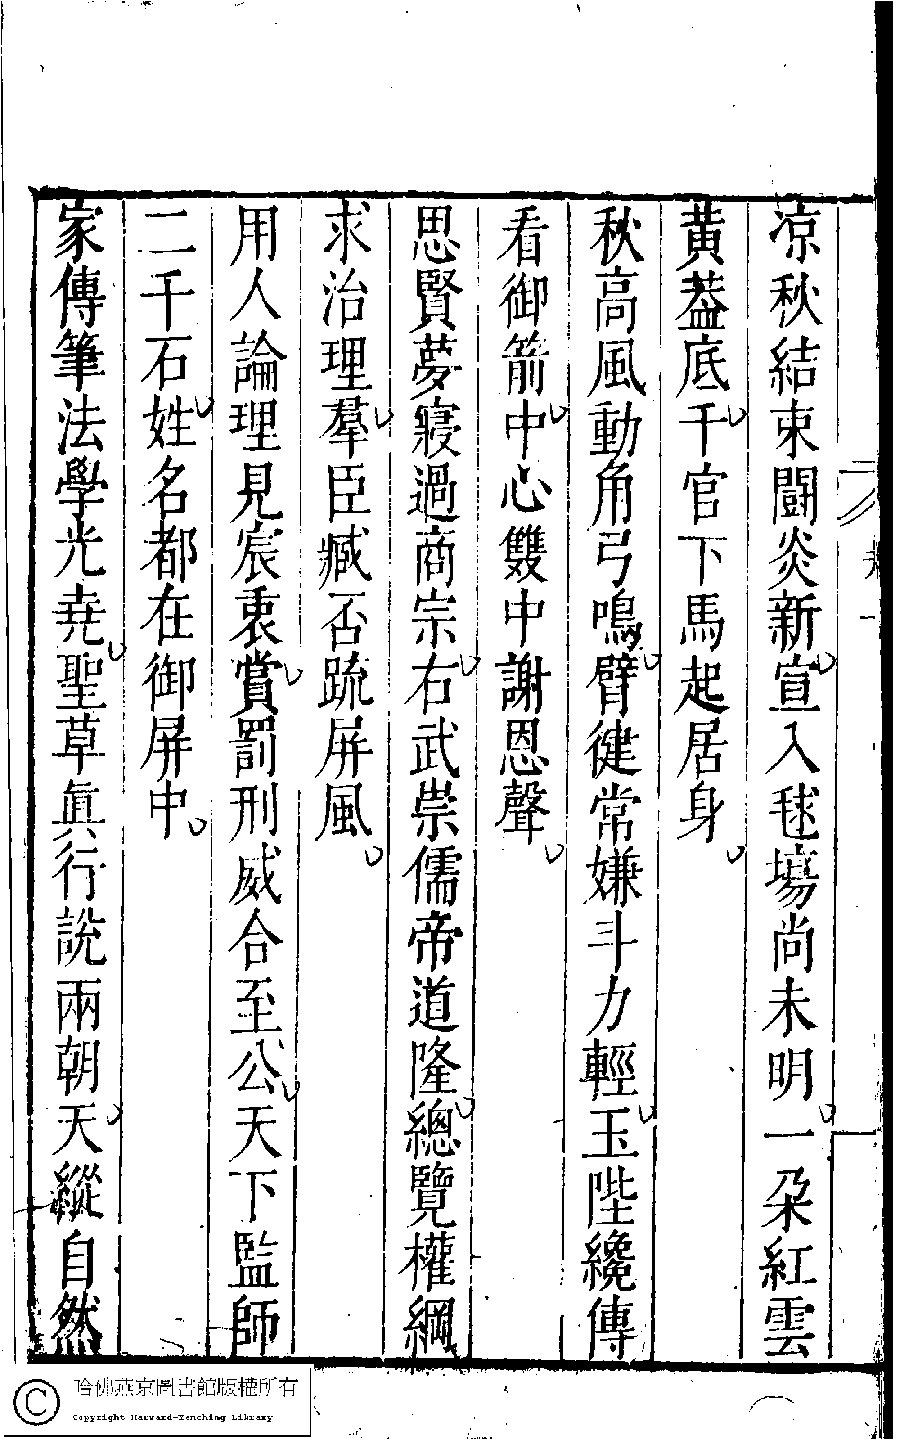 凉秋結束闘炎新宣入毬場尚未明一朶紅雲
黃葢底千官下馬起居身
秋高風動角弓鳴臂健常嫌斗力輕玉陛纔傳
看御箭中心雙中謝恩聲
思賢夢寢過商宗右武崇儒帝道隆總覽權綱
求治理羣臣臧否疏屏風
用人論理見宸衷賞罰刑威合至公天下監師
二千石姓名都在御屏中
家傳筆法學光堯聖草眞行說兩朝天縱自然
哈佛燕京圖書館版權所有
Copyright Harvard-Yenching Library